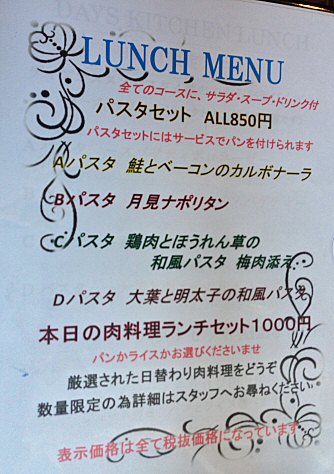 LUNCH MENU
全てのコースに、サラダ・スープ・ドリンク付
パスタセット ALL850円
パスタセットにはサービスでパンを付けられます
Aパスタ 鮭とベーコンのカルボナーラ
Bパスタ 月見ナポリタン
Cパスタ 鶏肉とほうれん草の
和風パスタ 梅肉添え
Dパスタ 大葉と明太子の和風パスタ
本日の肉料理ランチセット1000円
パンかライスかお選びくださいませ
厳選された日替わり肉料理をどうぞ
数量限定の為詳細はスタッフへお尋ねください
表示価格は全て税抜価格になっています